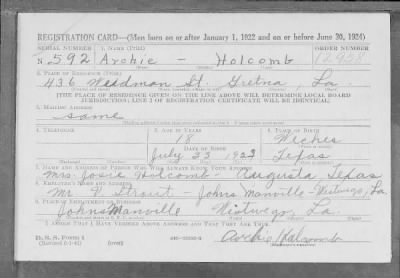 REGISTRATION CARD—(Men born on or after January 1, 1922 and on or before June 30, 1924)
SERIAL NUMBER 1. NAME (Print) ORDER NUMBER
N 592 Archie - Holcomb 12958
(First) (Middle) (Last)
2. PLACE OF RESIDENCE (Print)
436 St. Gretna, La.
[THE PLACE OF RESIDENCE GIVEN ON THE LINE ABOVE WILL DETERMINE LOCAL BOARD
JURISDICTION; LINE 2 OF REGISTRATION CERTIFICATE WILL BE IDENTICAL]
3. MAILING ADDRESS
same
4. TELEPHONE 5. AGE IN YEARS 6. PLACE OF BIRTH
18 Weches
July 23 1923 Texas
7. NAME AND ADDRESS OF PERSON WHO WILL ALWAYS KNOW YOUR ADDRESS
Mrs. Josie Holcomb - Augusta Texas
8. EMPLOYER'S NAME AND ADDRESS
Mr. - Johns Manville - Westwego, La
9. PLACE OF EMPLOYMENT OR BUSINESS
Johns Manville Westwego, La.
I AFFIRM THAT I HAVE VERIFIED ABOVE ANSWERS AND THAT THEY ARE TRUE.
D. S. S. Form 1
Archie Holcomb